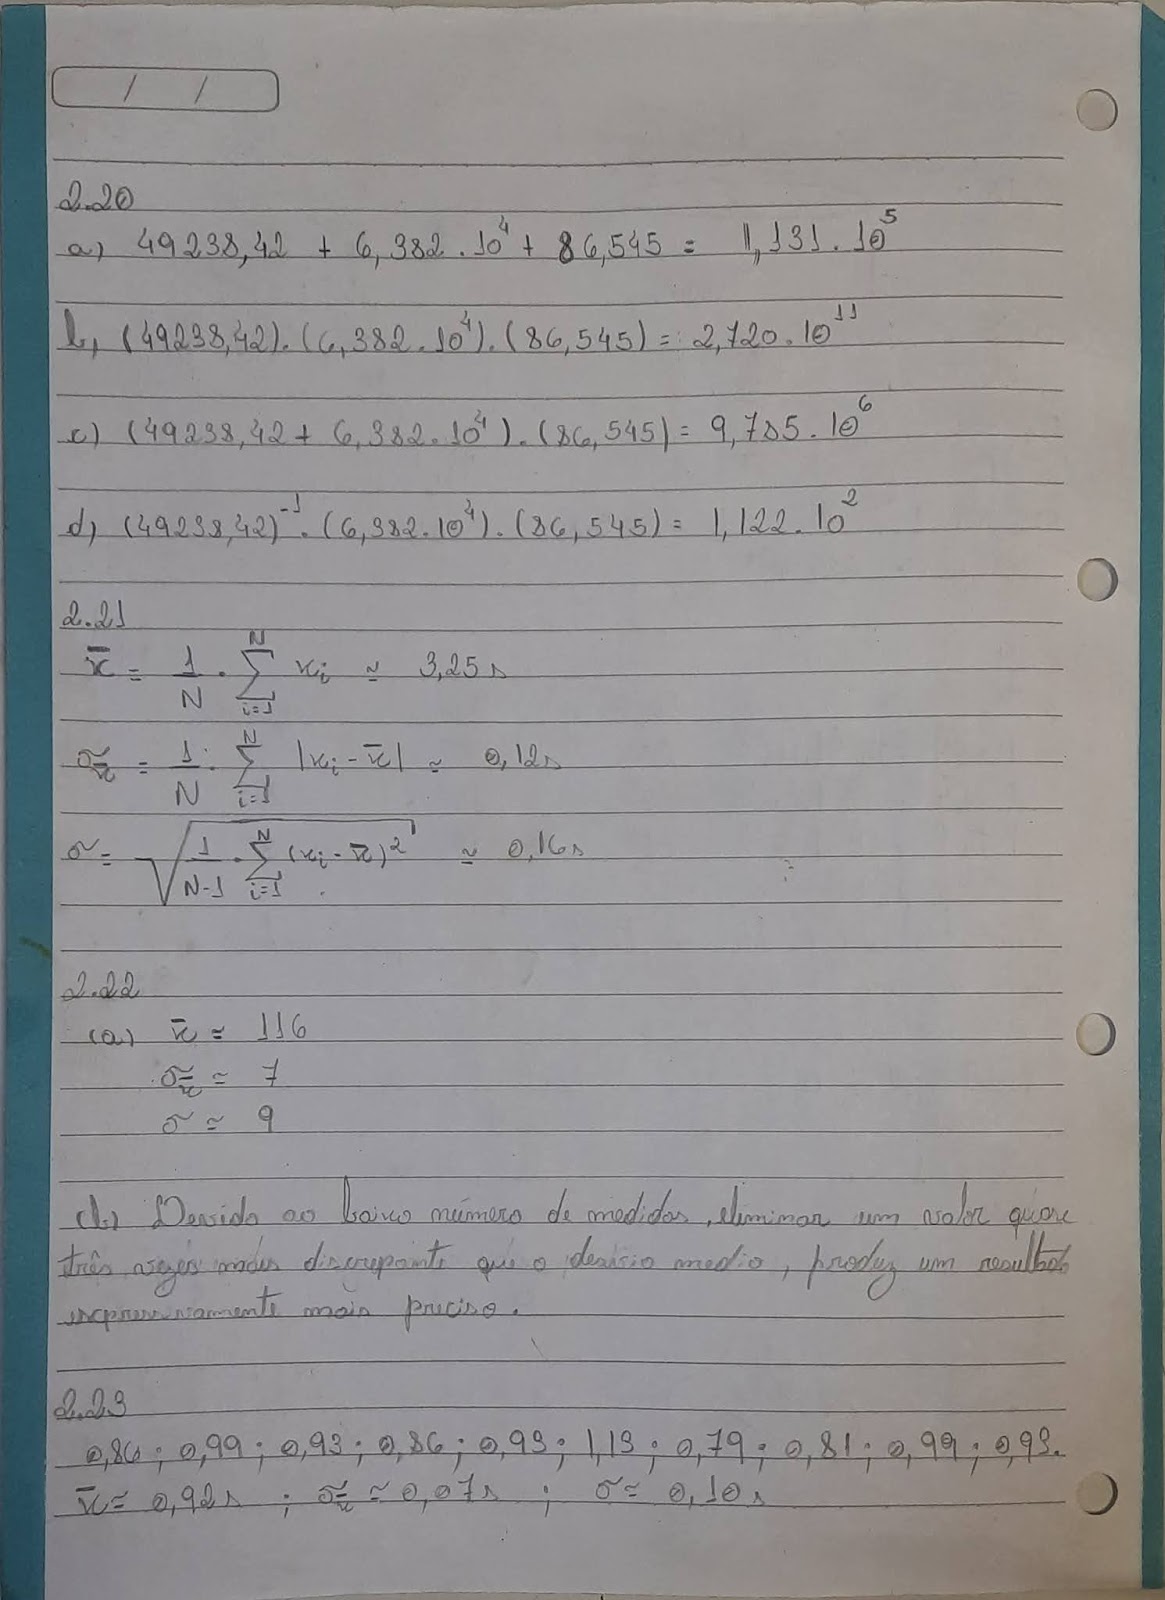 / /
2.20
a) 49238,42 + 6,382 . 10⁴ + 86,545 = 1,131 . 10⁵
b) (49238,42) . (6,382 . 10⁴) . (86,545) = 2,720 . 10¹¹
c) (49238,42 + 6,382 . 10⁴) . (86,545) = 9,785 . 10⁶
d) (49238,42)⁻¹ . (6,382 . 10⁴) . (86,545) = 1,122 . 10²
2.21
x̄ = 1/N . Σ_{i=1}^{N} xᵢ ≃ 3,25 s
σ_x̄ = 1/N . Σ_{i=1}^{N} |xᵢ - x̄| ≃ 0,12 s
σ = √(1/(N-1) . Σ_{i=1}^{N} (xᵢ - x̄)²) ≃ 0,16 s
2.22
(a) x̄ ≃ 116
σ_x̄ ≃ 7
σ ≃ 9
(b) Devido ao baixo número de medidas, eliminar um valor quase
três vezes mais discrepante que o desvio medio, produz um resultado
expressivamente mais preciso.
2.23
0,86 ; 0,99 ; 0,93 ; 0,86 ; 0,93 ; 1,13 ; 0,79 ; 0,81 ; 0,99 ; 0,93.
x̄ ≃ 0,92 s ; σ_x̄ ≃ 0,07 s ; σ ≃ 0,10 s